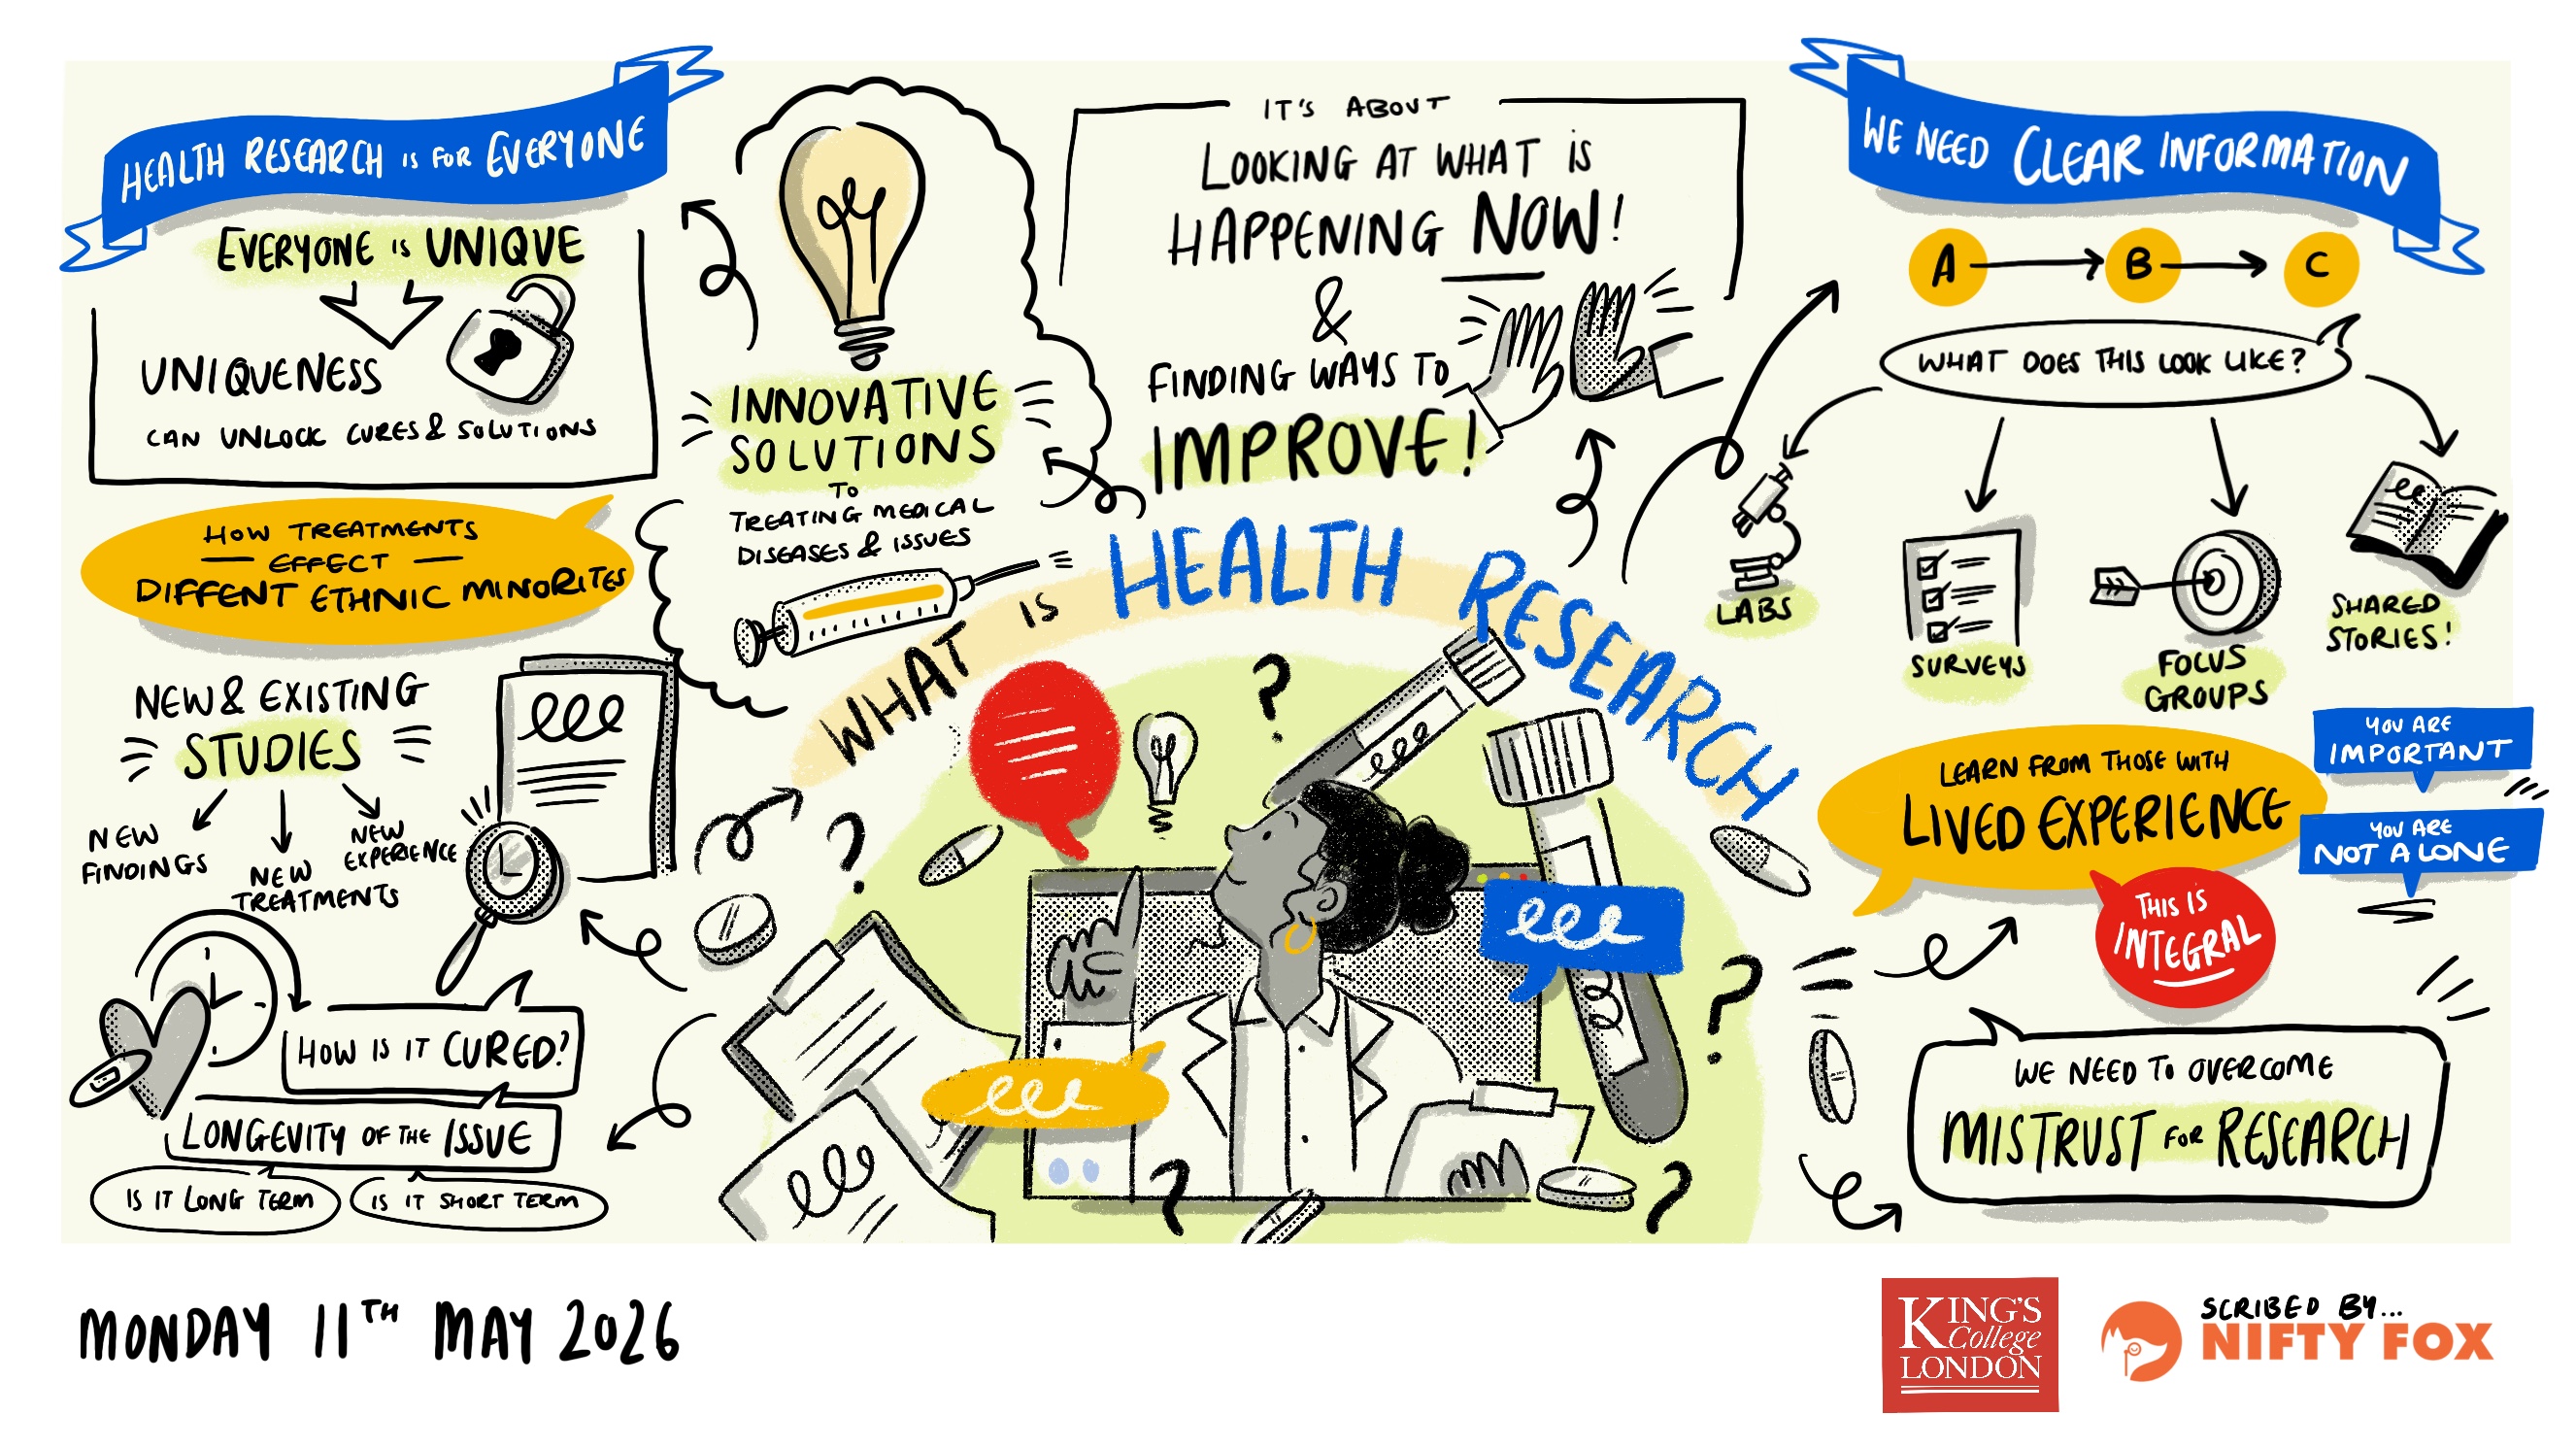 HEALTH RESEARCH IS FOR EVERYONE
EVERYONE IS UNIQUE
UNIQUENESS
CAN UNLOCK CURES & SOLUTIONS
HOW TREATMENTS
EFFECT
DIFFENT ETHNIC MINORITES
NEW & EXISTING
STUDIES
NEW
FINDINGS
NEW
TREATMENTS
NEW
EXPERIENCE
HOW IS IT CURED?
LONGEVITY OF THE ISSUE
IS IT LONG TERM
IS IT SHORT TERM
INNOVATIVE
SOLUTIONS
TO
TREATING MEDICAL
DISEASES & ISSUES
IT'S ABOUT
LOOKING AT WHAT IS
HAPPENING NOW!
&
FINDING WAYS TO
IMPROVE!
WHAT IS HEALTH RESEARCH
?
?
?
?
?
WE NEED CLEAR INFORMATION
A B C
WHAT DOES THIS LOOK LIKE?
LABS
SURVEYS
FOCUS
GROUPS
SHARED
STORIES!
LEARN FROM THOSE WITH
LIVED EXPERIENCE
YOU ARE
IMPORTANT
YOU ARE
NOT ALONE
THIS IS
INTEGRAL
WE NEED TO OVERCOME
MISTRUST FOR RESEARCH
MONDAY 11TH MAY 2026
KING'S
College
LONDON
SCRIBED BY...
NIFTY FOX